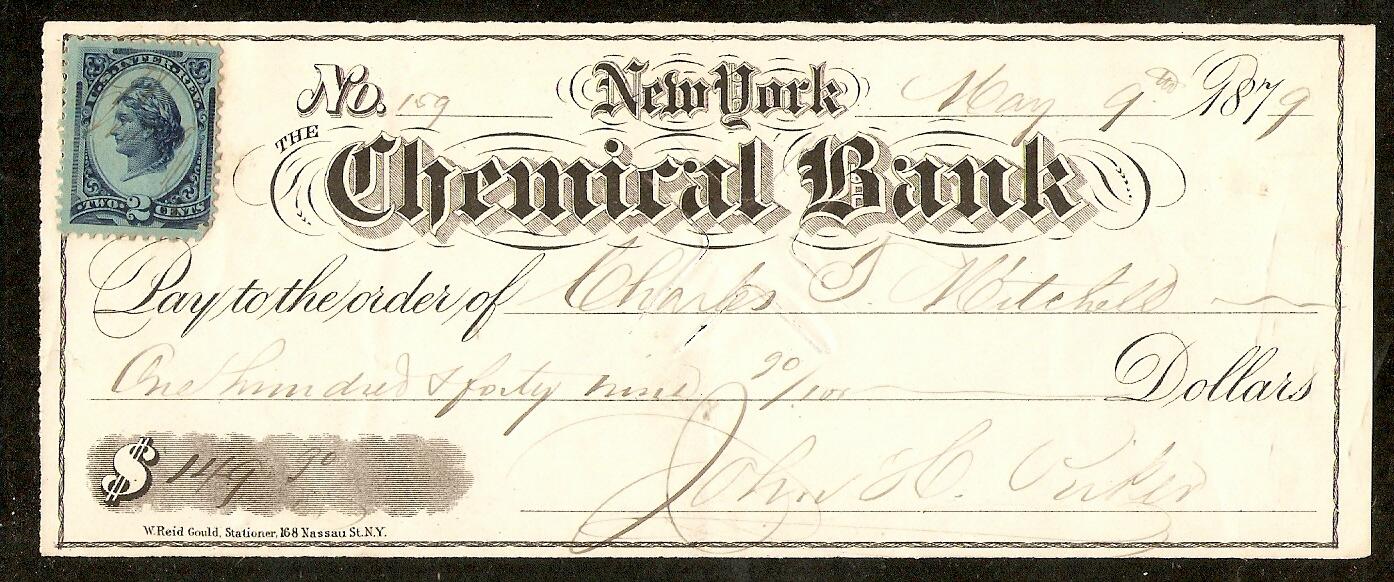 U.S. INTER. REV.
TWO 2 CENTS
No. 159 New York May 9th 1879
THE
Chemical Bank
Pay to the order of Charles S. Mitchell
One hundred & forty nine 90/100 Dollars
$ 149 90
John H.
W. Reid Gould, Stationer, 168 Nassau St. N.Y.